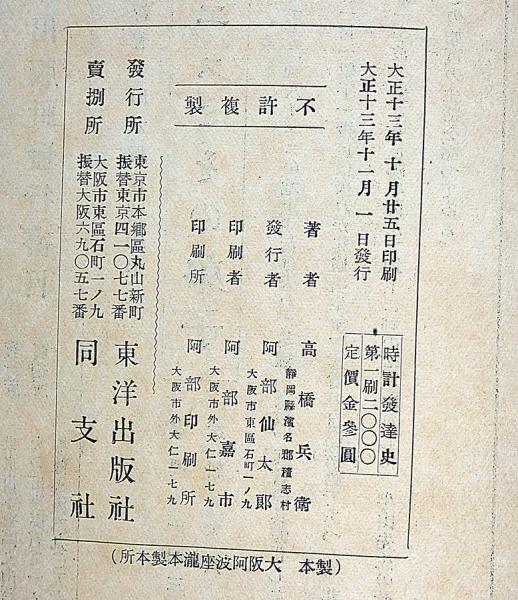 大正十三年十月廿五日印刷
大正十三年十一月一日發行
時計發達史
第一刷二〇〇〇
定價金參圓
不許複製
著者 高橋兵衛
靜岡縣濱名郡積志村
發行者 阿部仙太郎
大阪市東區石町一ノ九
印刷者 阿部嘉市
大阪市外大仁一七九
印刷所 阿部印刷所
大阪市外大仁一七九
發行所 東京市本鄕區丸山新町 東洋出版社
振替東京四一〇七七番
賣捌所 大阪市東區石町一ノ九 同支社
振替大阪六九〇五七番
(製本 大阪阿波座瀧本製本所)